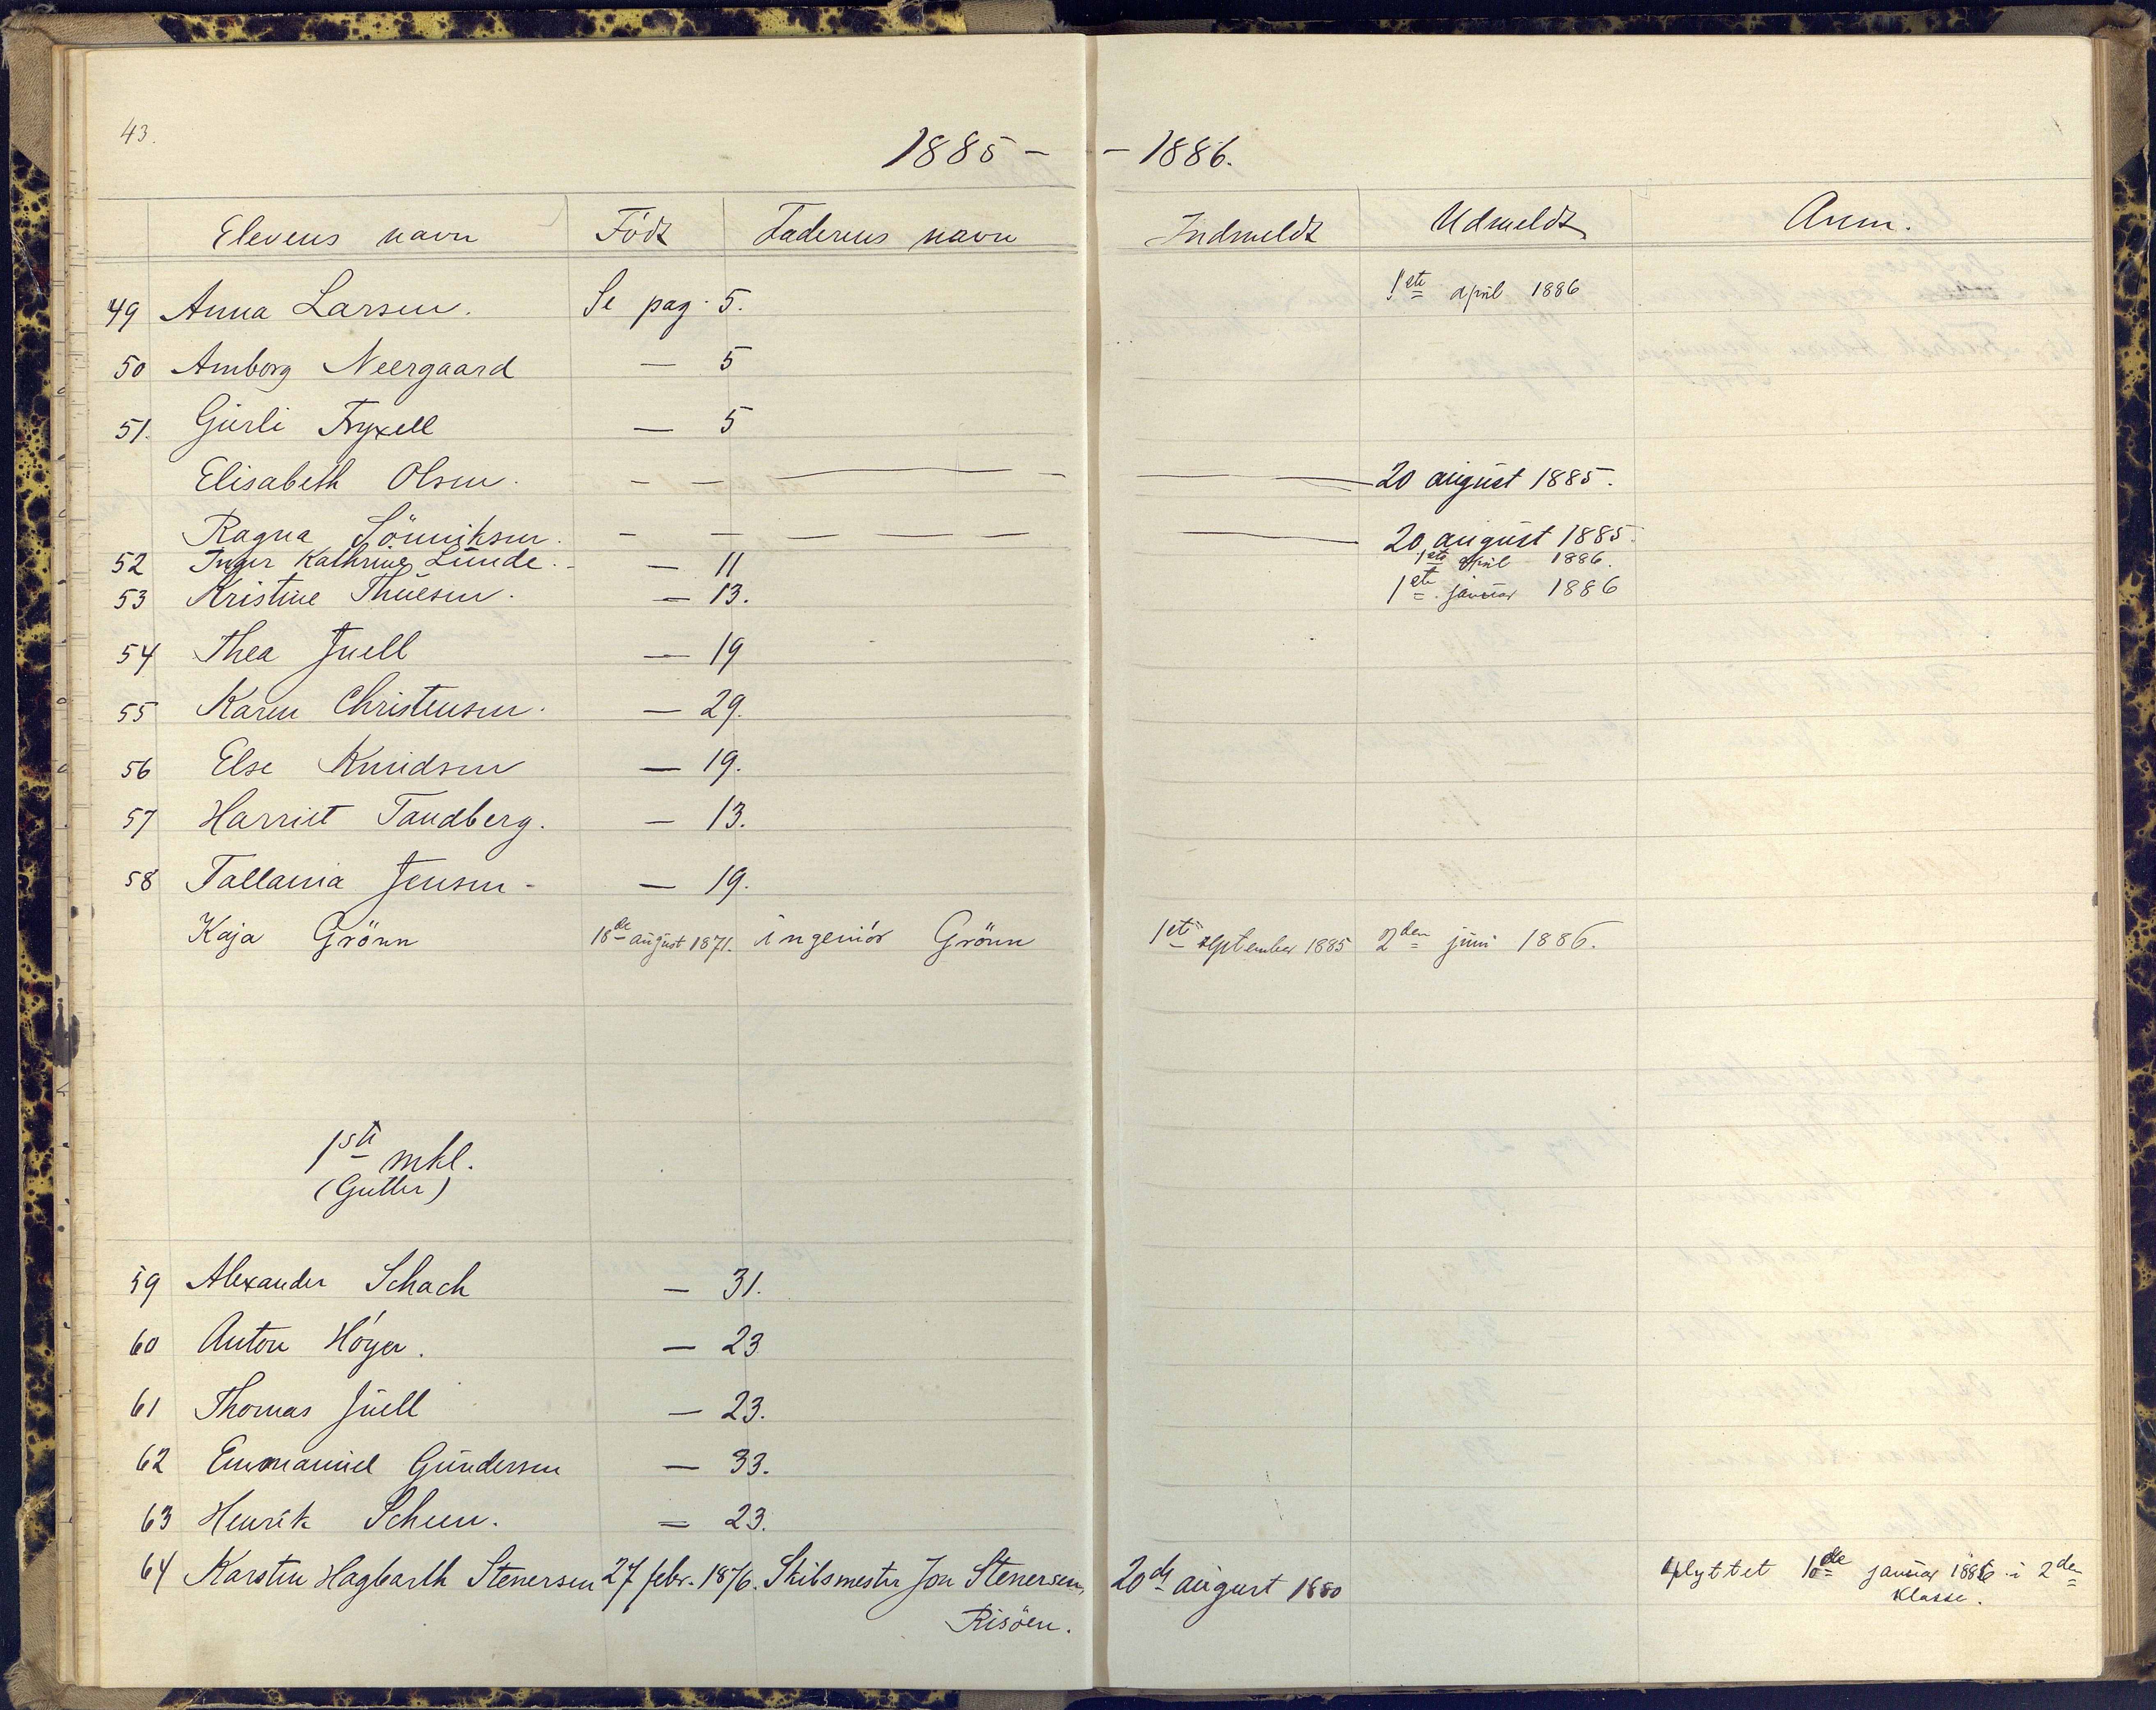 43.
1885 – – 1886.
Elevens navn Födt Faderens navn Indmeldt Udmeldt Anm.
49 Anna Larsen. Se pag. 5. 1ste april 1886
50 Amborg Neergaard — 5
51. Gurli Fryxell — 5
Elisabeth Olsen. – – — – — 20 august 1885.
Ragna Sönniksen. – – — — — — 20 august 1885.
52 Inger Kathrine Lunde. – — 11 1ste april 1886.
53 Kristine Thuesen. — 13. 1ste januar 1886
54 Thea Juell — 19
55 Karen Christensen. — 29.
56 Else Knudsen — 19.
57 Harriet Tandberg. — 13.
58 Tallania Jensen – — 19.
Kaja Grönn 18de august 1871. ingeniör Grönn 1ste september 1885 2den juni 1886.
1ste mkl.
(Gutter)
59 Alexander Schach — 31.
60 Anton Höyer. — 23
61 Thomas Juell — 23.
62 Emmanuel Gundersen — 33.
63 Henrik Scheen. — 23.
64 Karsten Hagbarth Stenersen 27 febr. 1876. Skibsmester Jon Stenersen, 20de august 1880 Oplyttet 10de januar 1886 i 2den
Risöen. Klasse.